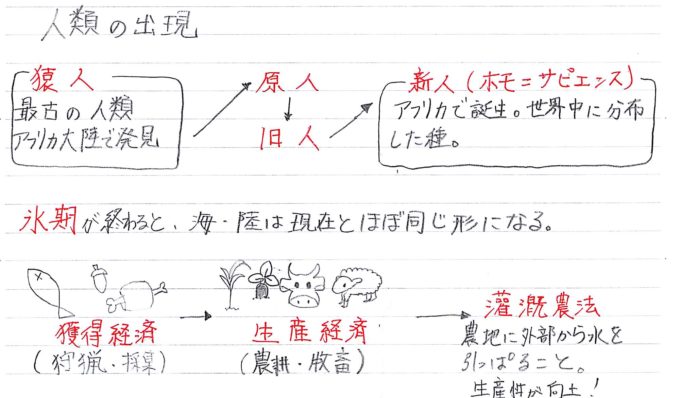 人類の出現
猿人
最古の人類
アフリカ大陸で発見
原人
旧人
新人(ホモ=サピエンス)
アフリカで誕生。世界中に分布
した種。
氷期が終わると、海・陸は現在とほぼ同じ形になる。
獲得経済
(狩猟・採集)
生産経済
(農耕・牧畜)
灌漑農法
農地に外部から水を
引っぱること。
生産性が向上!